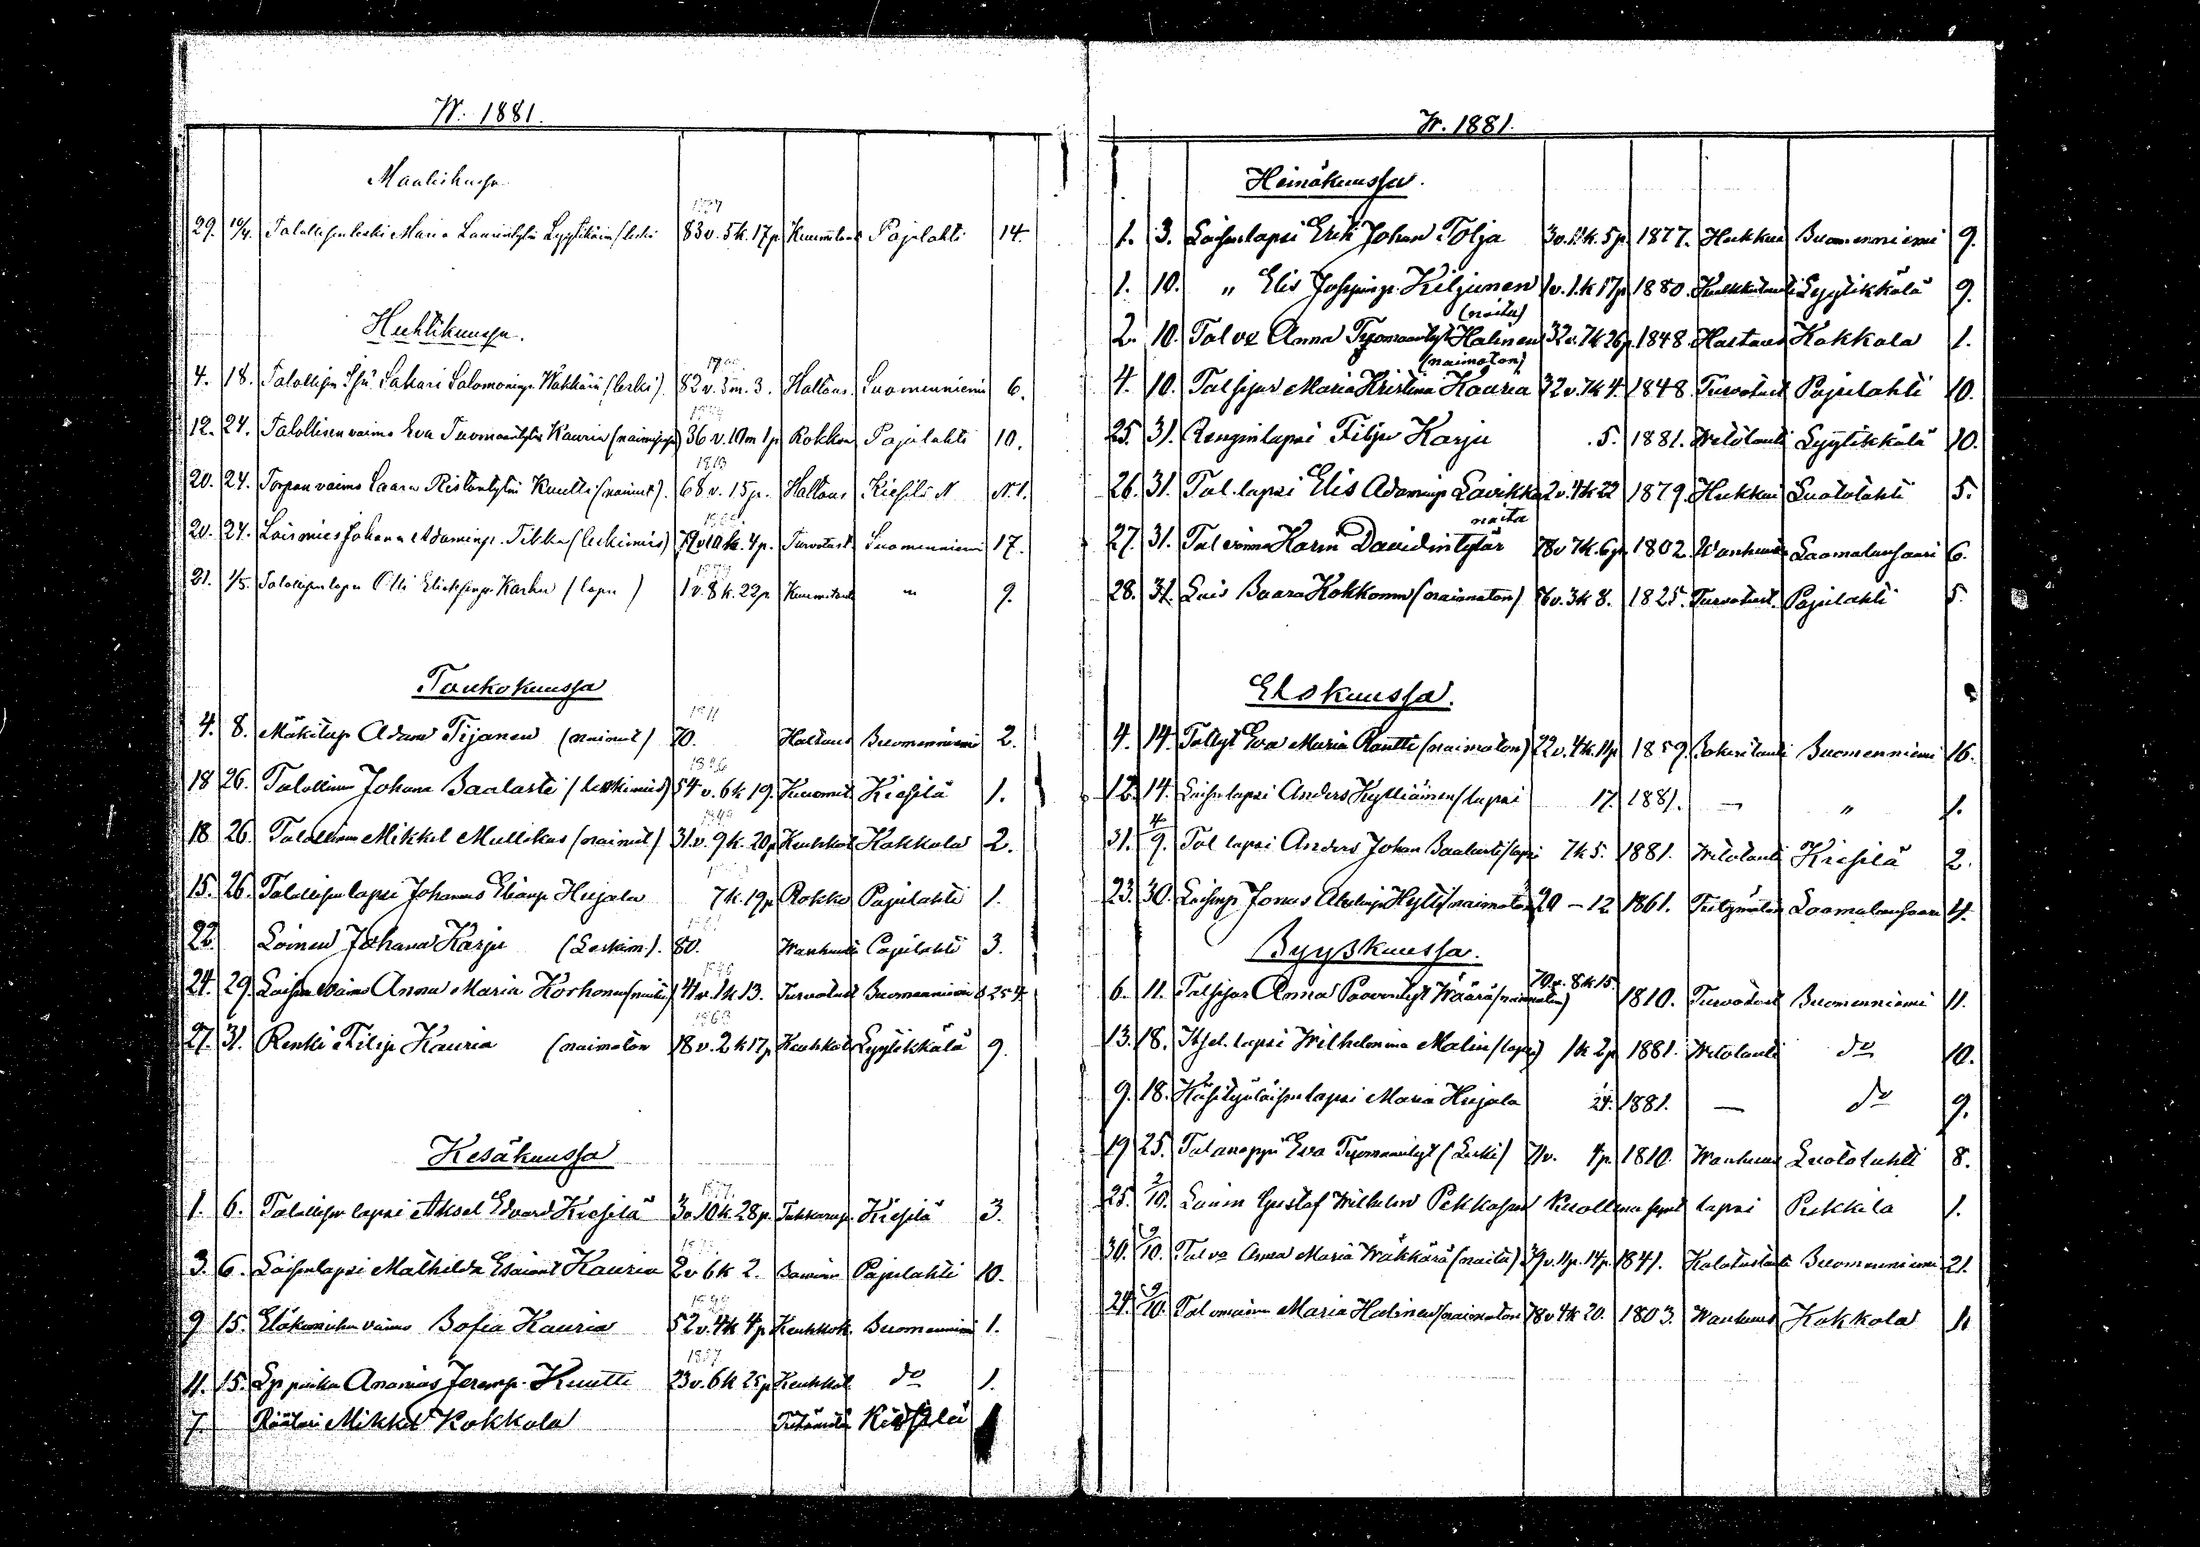 W. 1881.
Maaliskuussa
29. 10/4. Talollisen leski Maria Laurintytär Lyytikäin (leski 83 v. 5 k. 17 p Kuumetaud Pajulahti 14.
Huhtikuussa.
4. 18. Talollisen Isä Sakari Salomoninp. Wäkkärä (leski). 82 v. 3 m. 3. Haltaus. Suomenniemi 6.
12. 24. Talollisen vaimo Eva Tuomaantytär Kauria 36 v. 10 m 1 p Rokkoa Pajulahti 10.
20. 24. Torpan vaimo Saara Ristontytär Kuutti (nainut). 68 v. 15 p. Haltaus Kiesilä N N. 1.
20. 24. Loismies Johan Adaminp. Tikka (leskimies) 10 k. 4 p. Turvotust Suomenniemi 17.
21. 1/5. Talollisen lapsi Olli Karhu (lapsi) 1 v. 8 k. 22 p Kuumetaud " 9.
Toukokuussa
1811
4. 8. Mäkitup Adam Tijanen (nainut) 70. Haltaus Suomenniemi 2.
1826
18 26. Talollinen Johan Saalasti (leskimies) 54 v. 6 k 19. Kuumet Kiesilä 1.
18 26. Talollinen Mikkel Mullikas (nainut) 31 v. 9 k. 20 p Keuhkot Kokkola 2.
15. 26. Talollisen lapsi Johannes Elianp Hujala 7 k. 19 p Rokko Pajulahti 1.
22. Loinen Johana Karju (Leskim). 80. Wanhuutt Pajulahti 3.
24. 29. Loisen vaimo Anna Maria Korhonen (naitu) 41 v. 1 k 13. Turvotust Suomenniemi S 254
1863
27. 31. Renki Filip Kauria (naimaton 18 v. 2 k 17 p Keuhkot Lyytikkälä 9.
Kesäkuussa
1877.
1. 6. Talollisen lapsi Aksel Edvard Kiesilä 3 v 10 k. 28 p. Tukkurup. Kiesilä 3.
3. 6. Loisen lapsi Mathilda Esaiant Kauria 2 v 6 k 2. Pajulahti 10.
9 15. Eläkemiehen vaimo Sofia Kauria 52 v. 4 k 4 p Keuhkok. Suomenniemi 1.
1857
11. 15. poika Ananias Jeremp. Kuutti 23 v. 6 k 25 p Keuhkot do 1.
7. Räätäri Mikkel Kokkola Kiesilä
W. 1881.
Heinäkuussa.
1. 3. Loisen lapsi Erik Johan Tolja 3 v. 12 k. 5 p. 1877. Hukkui Suomenniemi 9.
1. 10. " Elis Josepinp. Kiljunen 1 v. 1 k 17 p 1880. Lyytikkälä 9.
(naitu)
2. 10. Tal va Anna Tuomaantyt Halinen 32 v. 7 k 26 p. 1848. Haltaus Kokkola 1.
(naimaton)
4. 10. Tal sisar Maria Kristina Kauria 32 v. 7 k 4. 1848. Turvotust Pajulahti 10.
25. 31. Rengin lapsi Filip Karju 5. 1881. Wetotauti Lyytikkälä 10.
26. 31. Tal. lapsi Elis Adaminp Lavikka 2 v. 4 k 22 1879. Hukkui Luotolahti 5.
naitu
27. 31. Tal vaimo Karin Davidintytär 78 v 7 k. 6 p. 1802. Wanhuus Laamalansaari 6.
28. 31. Lois Saara Kokkonen (naimaton) 56 v. 3 k 8. 1825. Turvotust. Pajulahti 5.
Elokuussa.
4. 14. Tal tyt Eva Maria Rautti (naimaton) 22 v. 4 k. 11 p 1859. Suomenniemi 16.
12. 14. Loisen lapsi Anders Kylliäinen (lapsi 17. 1881. — " 1.
31. 4/9. Tal lapsi Anders Johan Saalasti (lapsi 7 k 5. 1881. Wetotauti Kiesilä 2.
23. 30. Loisenp Jonas Hytti (naimaton 20 – 12 1861. Laamalansaari 4.
Syyskuussa.
6. 11. Tal sisar Anna Paavontyt Wäärä (naimaton) 70 v. 8 k 15. 1810. Turvotust Suomenniemi 11.
13. 18. Itsel. lapsi Wilhelmina Malin (lapsi) 1 k 2 p 1881. Wetotauti do 10.
9. 18. Käsityöläisen lapsi Maria Hujala 24. 1881. — do 9.
19 25. Tal anoppi Eva Tuomaantyt (Leski) 71 v. 4 p. 1810. Wanhuus Luotolahti 8.
25. 2/10. Gustaf Wilhelm Pekkasen Kuollena synt lapsi Pekkila 1.
30. 9/10. Tal va Anna Maria Wäkkärä (naitu) 39 v. 11 p. 14 p. 1841. Suomenniemi 21.
24. 9/10. Tal Maria Halinen (naimaton 78 v 4 k 20. 1803. Wanhuus Kokkola 1.